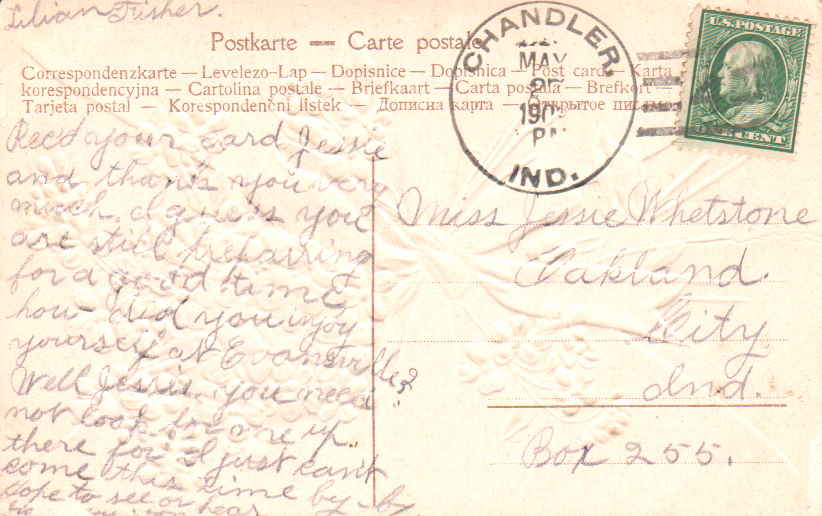 Lilian Fisher.
Postkarte — Carte postale
Correspondenzkarte — Levelezo-Lap — Dopisnice — Dopisnica — Post card — Karta
korespondencyjna — Cartolina postale — Briefkaart — Carta postala — Brefkort —
Tarjeta postal — Korespondencni listek — Дописна карта — Открытое письмо
CHANDLER,
MAY
190
PM
IND.
U.S. POSTAGE
ONE CENT
Rec'd your card Jessie
and thanks you very
much, I guess you
are still preparring
for a good time
how did you injoy
yourself at Evansville?
Well Jessie, you need
not look for me up
there for I just can't
come this time by-by
Hope to see or hear
Miss Jessie Whetstone
Oakland
City
Ind.
Box 255.